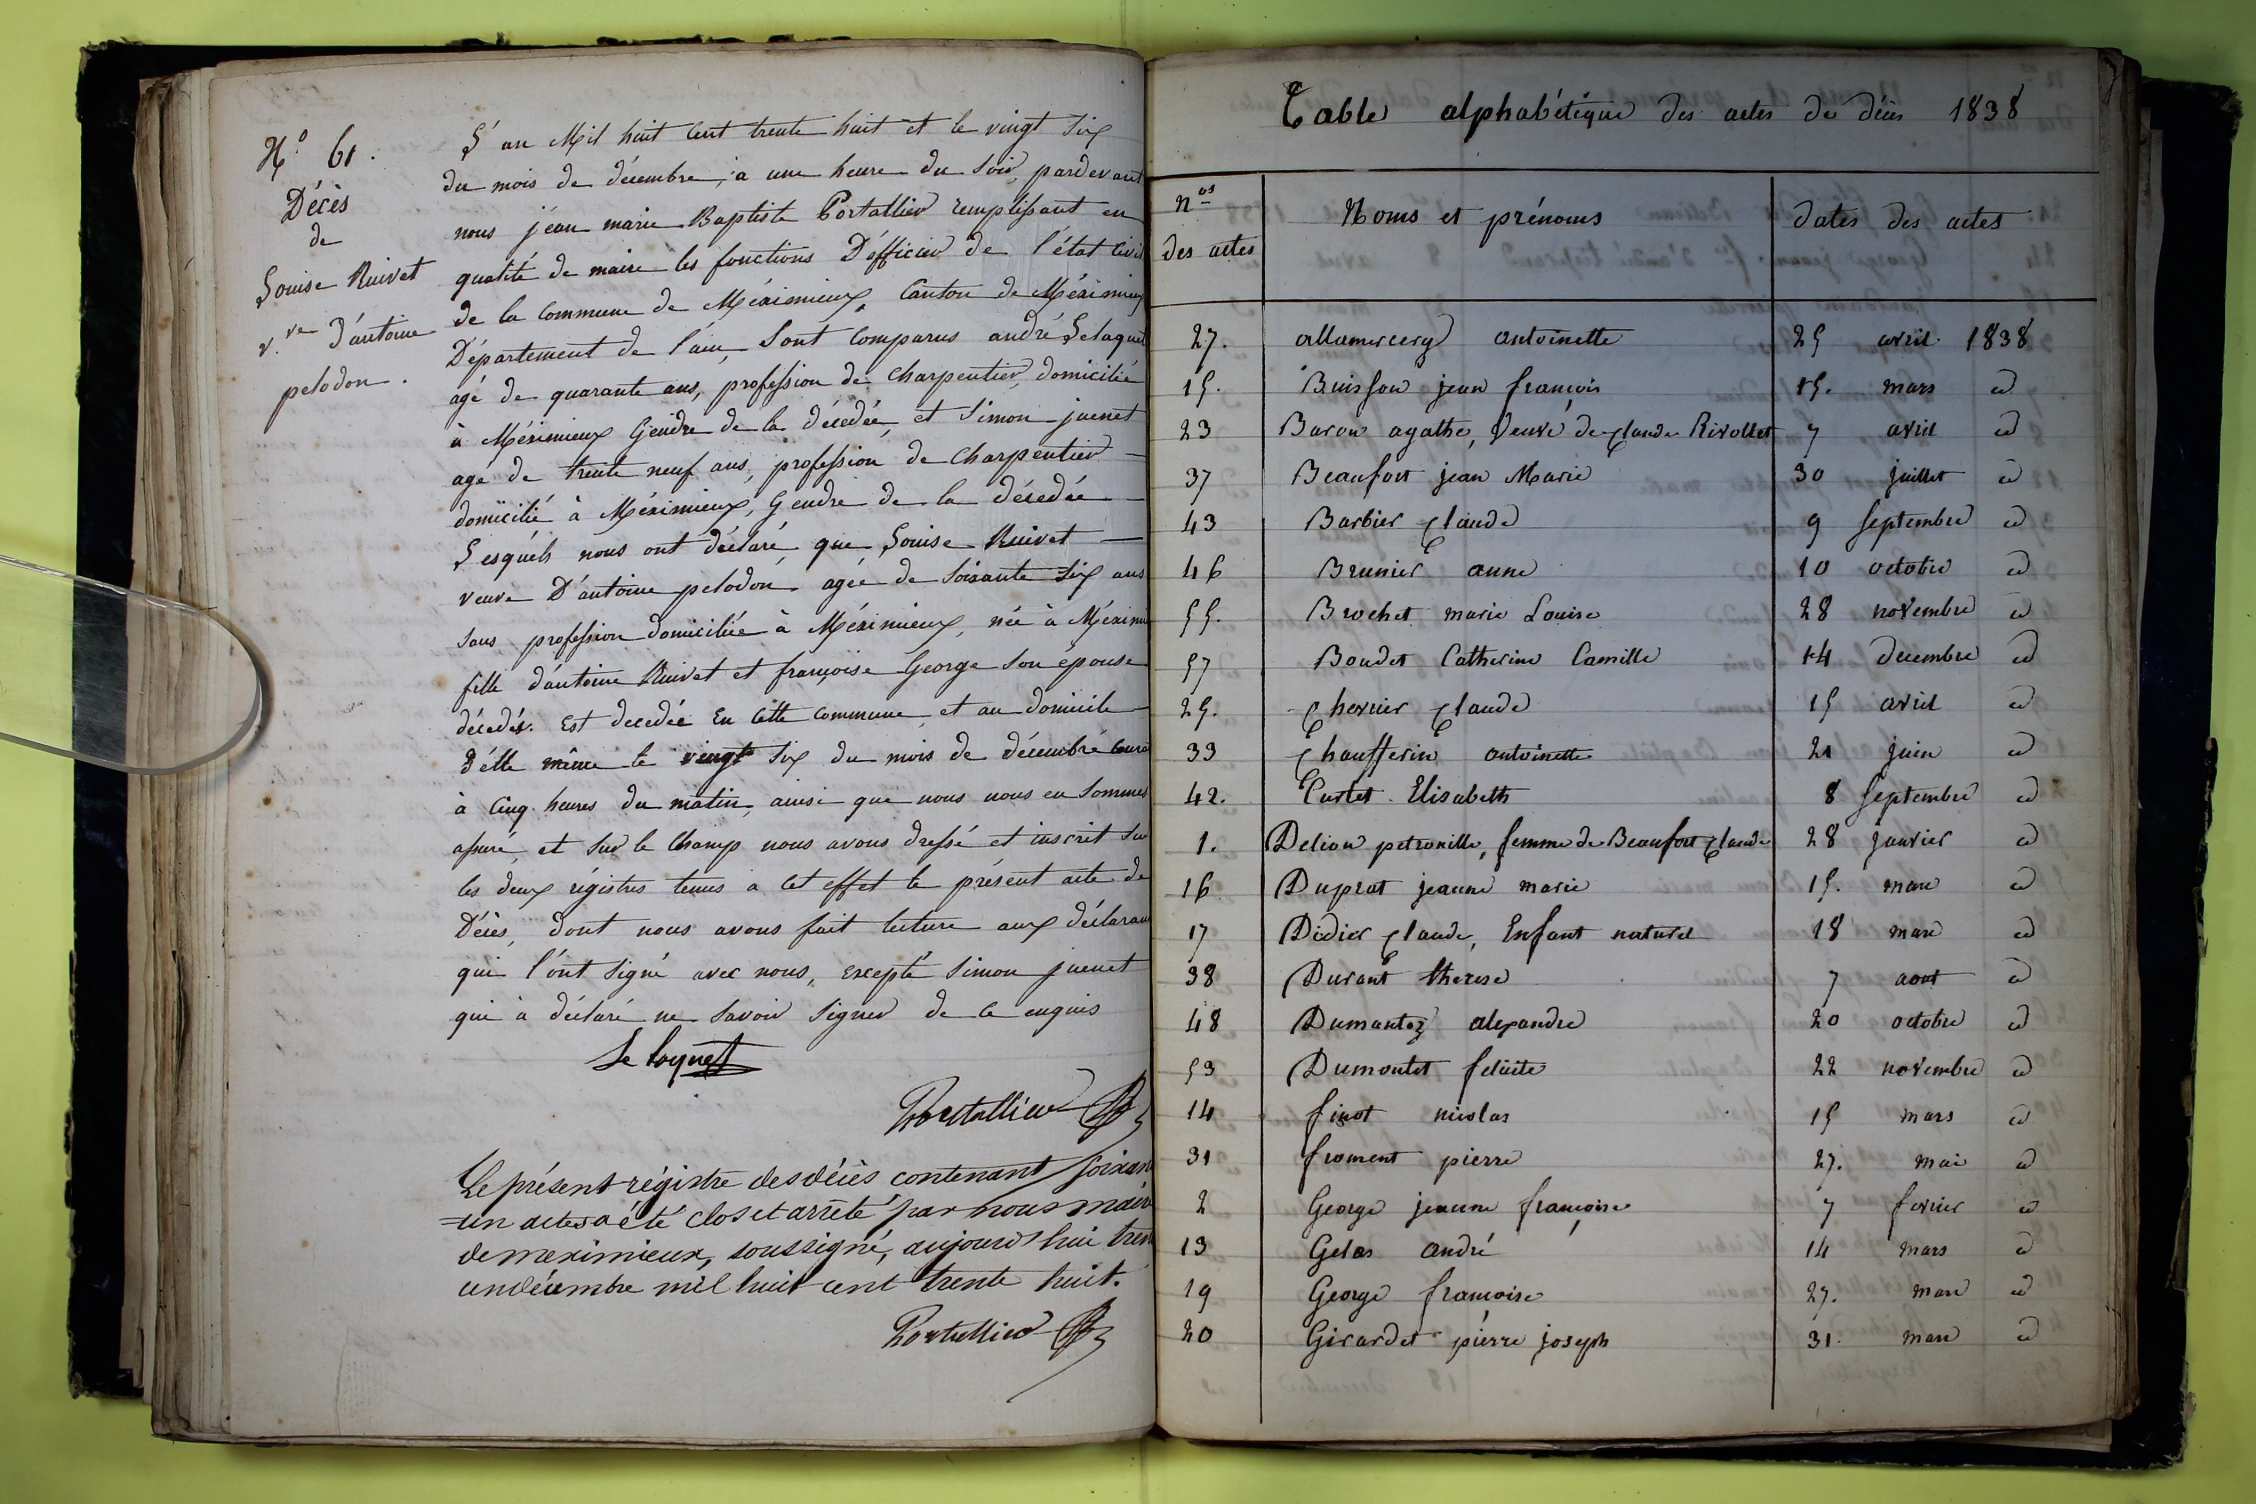 N.º 61.
Décès
de
Louise Ruivet
v.ve d'antoine
pelodon.
L'an Mil huit Cent trente huit et le vingt Six
du mois de décembre, à une heure du Soir, pardevant
nous jean marie Baptiste Portallier remplissant en
qualité de maire les fonctions D'officier de l'état Civil
de la Commune de Méximieux, Canton de Méximieux
Département de l'ain, Sont Comparus andré Leloquet
agé de quarante ans, profession de Charpentier, domicilié
à Méximieux Gendre de la décedée, et Simon juenet
agé de trente neuf ans, profession de Charpentier
domicilié à Méximieux, Gendre de la décedée
Lesquels nous ont déclaré que Louise Ruivet
veuve D'antoine pelodon agée de Soixante Six ans
sans profession domiciliée à Méximieux, née à Méximi
fille d'antoine Ruivet et françoise George Son épouse
décedés. Est decedée En Cette Commune, et au domicile
d'elle même le vingt Six du mois de décembre Coura
à Cinq heures du matin, ainsi que nous nous en Sommes
assuré, et Sur le Champ nous avons dressé et inscrit Sur
les deux régistres tenus à Cet effet le présent acte de
Décès, dont nous avons fait lecture aux déclarants
qui l'ont Signé avec nous, excepté Simon juenet
qui à déclaré ne Savoir Signer de Ce enquis
Le loquet
Portallier
Le présent régistre des décès contenant Soixan
un actes a été clos et arrêté par nous maire
de meximieux, soussigné, aujourd'hui tren
un décembre mil huit cent trente huit.
Portallier
Table alphabétique des actes de décès 1838
n.os des actes Noms et prénoms dates des actes
27. allamercery antoinette 25 avril 1838
15. Buisson jean françois 15. mars id
23 Baron agathe, Veuve de Claude Rivollet 7 avril id
37 Beaufort jean Marie 30 juillet id
43 Barbier Claude 9 Septembre id
46 Brunier anne 10 octobre id
55. Brochet marie Louise 28 novembre id
57 Boudet Catherine Camille 14 decembre id
25. Chervier Claude 15 avril id
33 Chaufferin antoinette 21 juin id
42. Curtet Elisabeth 8 Septembre id
1. Delian petronille, femme de Beaufort Claude 28 janvier id
16 Duprat jeanne marie 15. mars id
17 Didier Claude, Enfant naturel 18 mars id
38 Durant therese 7 aout id
48 Dumantez alexandre 20 octobre id
53 Dumontet felicite 22 novembre id
14 finot nicolas 15 mars id
31 froment pierre 27. mai id
2 George jeanne françoise 7 fevrier id
13 Gelas andré 14 mars id
19 George françoise 27. mars id
20 Girardet pierre joseph 31. mars id